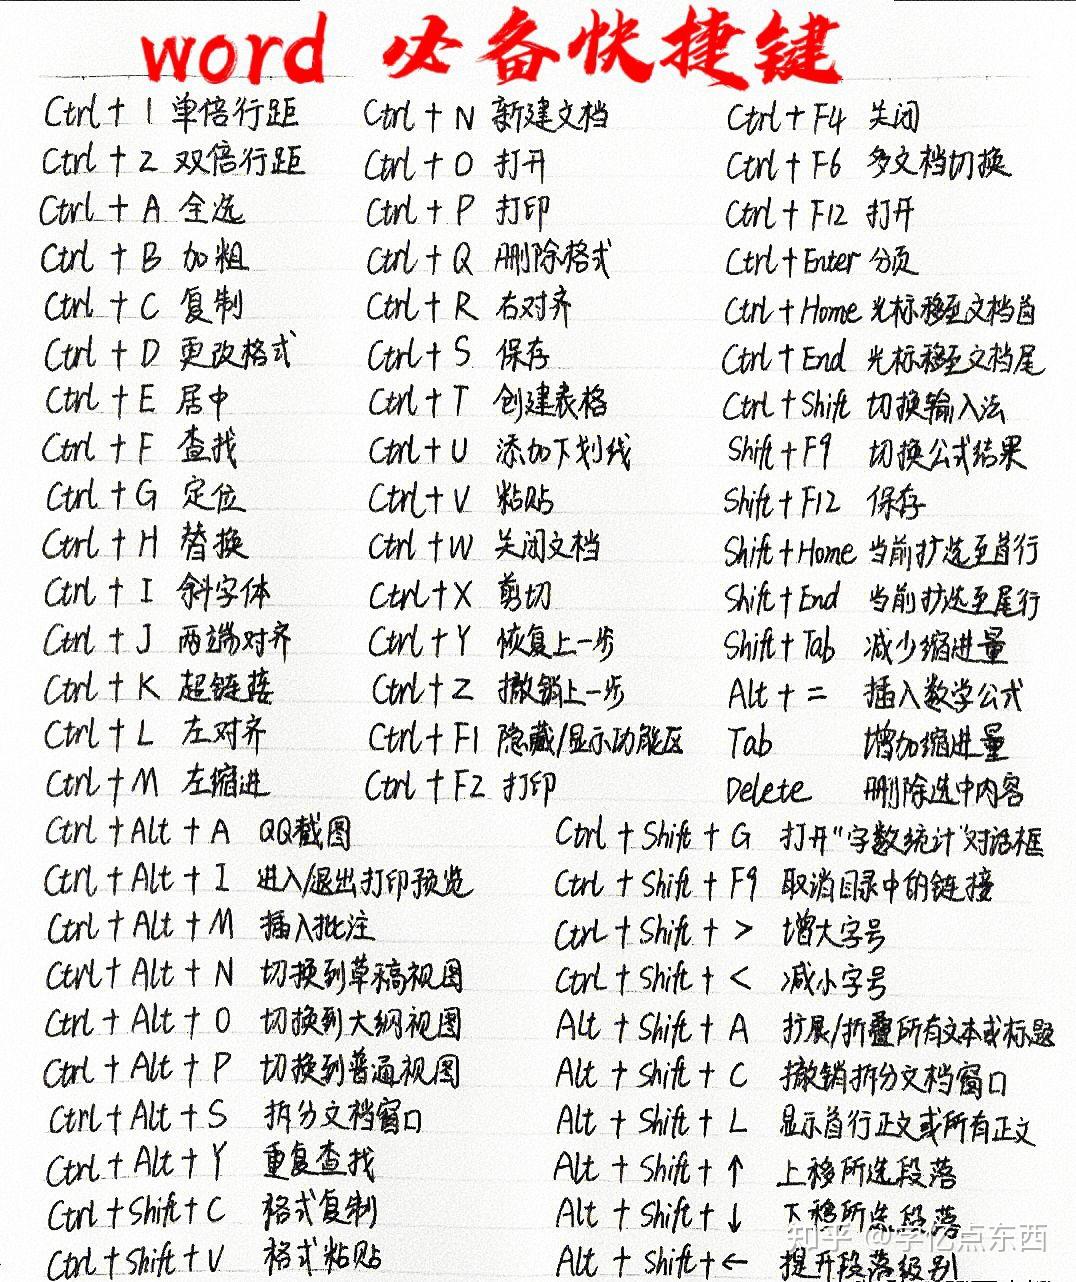 word 必备快捷键
Ctrl + 1 单倍行距
Ctrl + 2 双倍行距
Ctrl + A 全选
Ctrl + B 加粗
Ctrl + C 复制
Ctrl + D 更改格式
Ctrl + E 居中
Ctrl + F 查找
Ctrl + G 定位
Ctrl + H 替换
Ctrl + I 斜字体
Ctrl + J 两端对齐
Ctrl + K 超链接
Ctrl + L 左对齐
Ctrl + M 左缩进
Ctrl + N 新建文档
Ctrl + O 打开
Ctrl + P 打印
Ctrl + Q 删除格式
Ctrl + R 右对齐
Ctrl + S 保存
Ctrl + T 创建表格
Ctrl + U 添加下划线
Ctrl + V 粘贴
Ctrl + W 关闭文档
Ctrl + X 剪切
Ctrl + Y 恢复上一步
Ctrl + Z 撤销上一步
Ctrl + F1 隐藏/显示功能区
Ctrl + F2 打印
Ctrl + F4 关闭
Ctrl + F6 多文档切换
Ctrl + F12 打开
Ctrl + Enter 分页
Ctrl + Home 光标移至文档首
Ctrl + End 光标移至文档尾
Ctrl + Shift 切换输入法
Shift + F9 切换公式结果
Shift + F12 保存
Shift + Home 当前扩选至首行
Shift + End 当前扩选至尾行
Shift + Tab 减少缩进量
Alt + = 插入数学公式
Tab 增加缩进量
Delete 删除选中内容
Ctrl + Alt + A QQ截图
Ctrl + Alt + I 进入/退出打印预览
Ctrl + Alt + M 插入批注
Ctrl + Alt + N 切换到草稿视图
Ctrl + Alt + O 切换到大纲视图
Ctrl + Alt + P 切换到普通视图
Ctrl + Alt + S 拆分文档窗口
Ctrl + Alt + Y 重复查找
Ctrl + Shift + C 格式复制
Ctrl + Shift + V 格式粘贴
Ctrl + Shift + G 打开"字数统计"对话框
Ctrl + Shift + F9 取消目录中的链接
Ctrl + Shift + > 增大字号
Ctrl + Shift + < 减小字号
Alt + Shift + A 扩展/折叠所有文本或标题
Alt + Shift + C 撤销拆分文档窗口
Alt + Shift + L 显示首行正文或所有正文
Alt + Shift + ↑ 上移所选段落
Alt + Shift + ↓ 下移所选段落
Alt + Shift + ← 提升段落级别
知乎 @学亿点东西